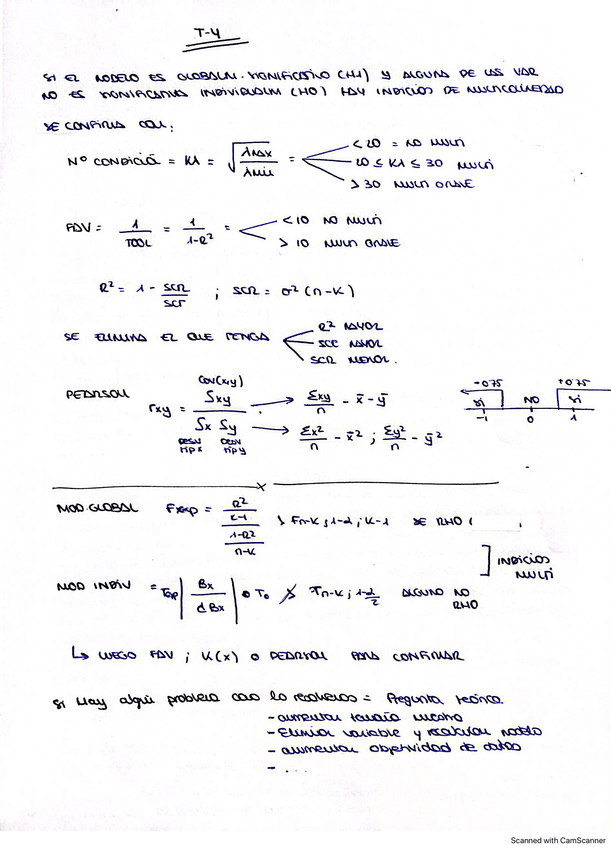 T-4
SI EL MODELO ES GLOBALM. SIGNIFICATIVO (H1) Y ALGUNA DE LAS VAR
NO ES SIGNIFICATIVA INDIVIDUALM (H0) HAY INDICIOS DE MULTICOLINEALIDAD
SE CONFIRMA CON:
Nº CONDICIÓN = K1 = √(λmax / λmin) =
< 20 = NO MULTI
20 ≤ K1 ≤ 30 MULTI
> 30 MULTI GRAVE
FAV = 1 / TOOL = 1 / 1-R² =
< 10 NO MULTI
> 10 MULTI GRAVE
R² = 1 - SCR / SCT ; SCR = σ² (n-K)
SE ELIMINA EL QUE TENGA
R² MAYOR
SCE MAYOR
SCR MENOR.
PEARSON
COV(x,y)
rxy = Sxy / Sx Sy
→ Σxy / n - x̄ - ȳ
→ Σx² / n - x̄² ; Σy² / n - ȳ²
DESV TIP X DESV TIP Y
-0'75 +0'75
SI NO SI
-1 0 1
MOD. GLOBAL Fexp = R² / K-1 / 1-R² / n-K > Fn-K ; 1-α ; K-1 SE RH0
INDICIOS MULTI
MOD INDIV = Texp | Bx / σBx | o To ≯ Tn-K ; 1-α/2 ALGUNO NO RH0
↳ LUEGO FAV ; K(x) o PEARSON PARA CONFIRMAR
Si Hay algún problema como lo resolvemos = Pregunta teórica.
- aumentar tamaño muestra
- Eliminar variable y recalcular modelo
- aumentar objetividad de datos
- ...
Scanned with CamScanner